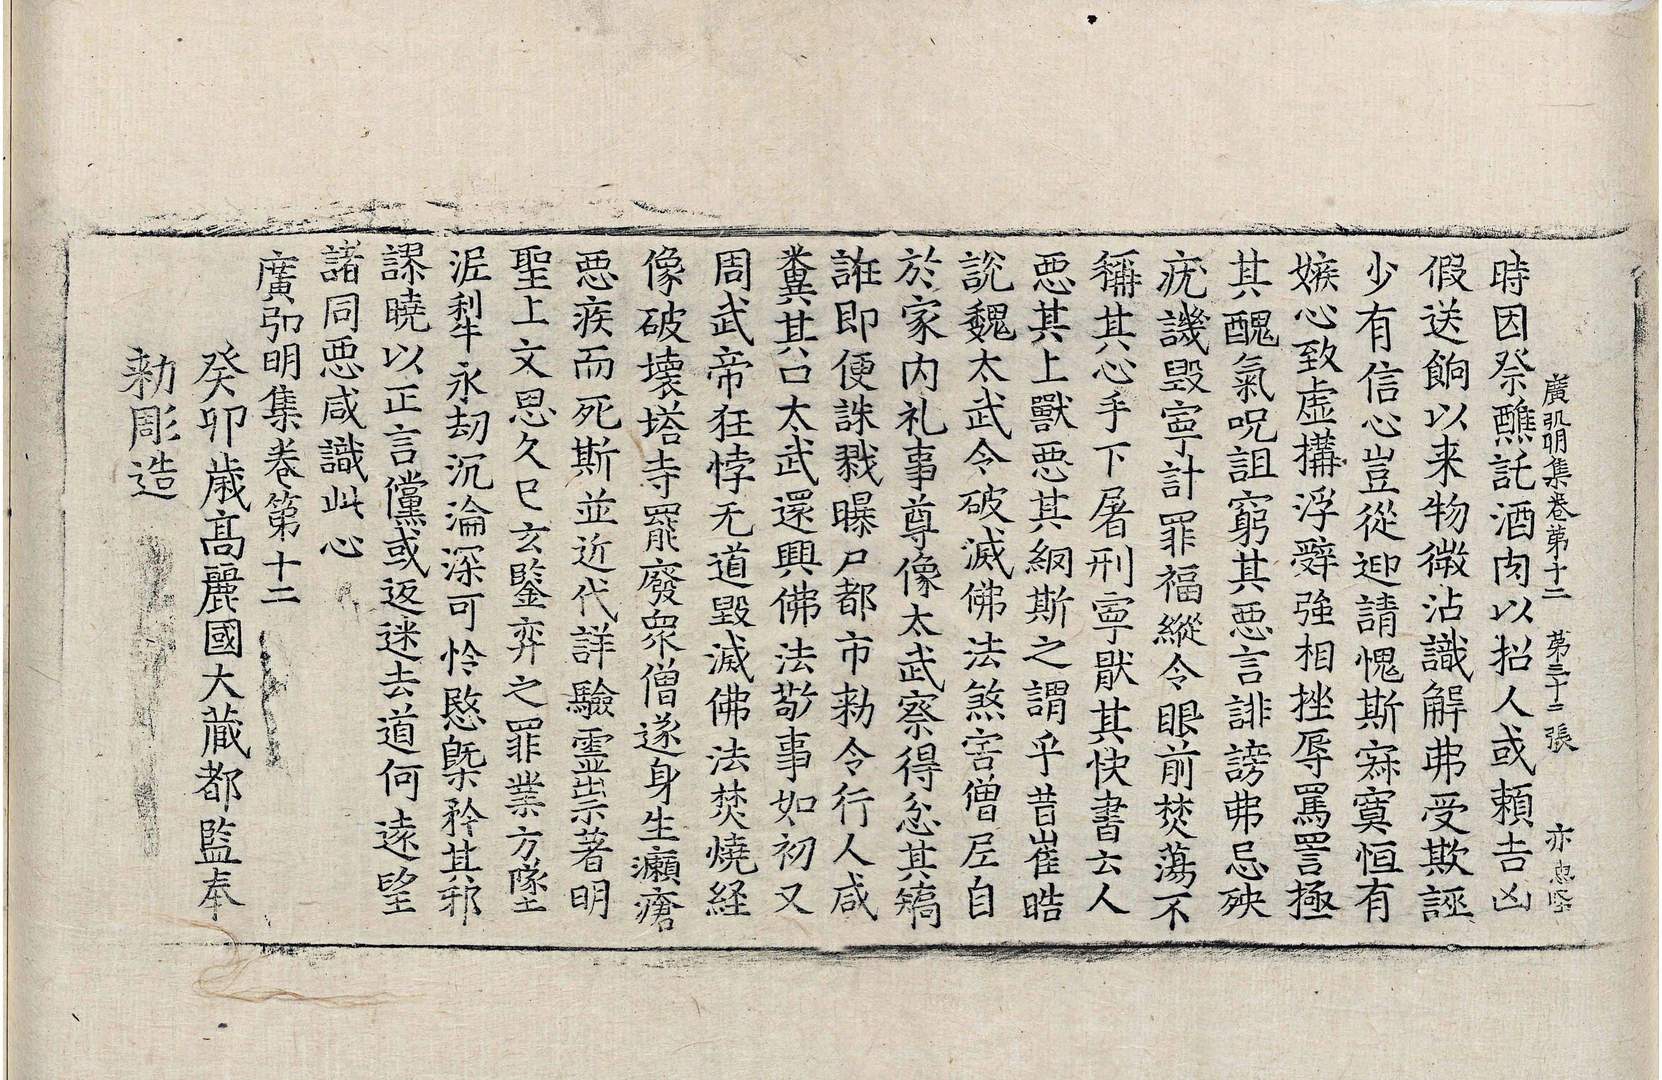 廣弘明集卷第十二　第三十二張　亦
時因祭醮託酒肉以招人或賴吉凶
假送餉以来物微沾識解弗受欺誣
少有信心豈從迎請愧斯寂寞恒有
嫉心致虛構浮辭強相挫辱罵詈極
其醜氣呪詛窮其惡言誹謗弗忌殃
疣譏毀寧計罪福縱令眼前焚蕩不
稱其心手下屠刑寧猒其快書云人
惡其上獸惡其網斯之謂乎昔崔皓
說魏太武令破滅佛法煞害僧尼自
於家內礼事尊像太武察得忿其矯
誑即便誅戮曝尸都市勑令行人咸
糞其口太武還興佛法敬事如初又
周武帝狂悖无道毀滅佛法焚燒経
像破壞塔寺罷廢衆僧遂身生癩瘡
惡疾而死斯並近代詳驗靈出示著明
聖上文思久已玄鑒弈之罪業方墜
泥犁永劫沉淪深可怜愍旣矜其邪
謬曉以正言儻或返迷去道何遠望
諸同惡咸識此心
廣弘明集卷第十二
癸卯歲高麗國大藏都監奉
勑彫造